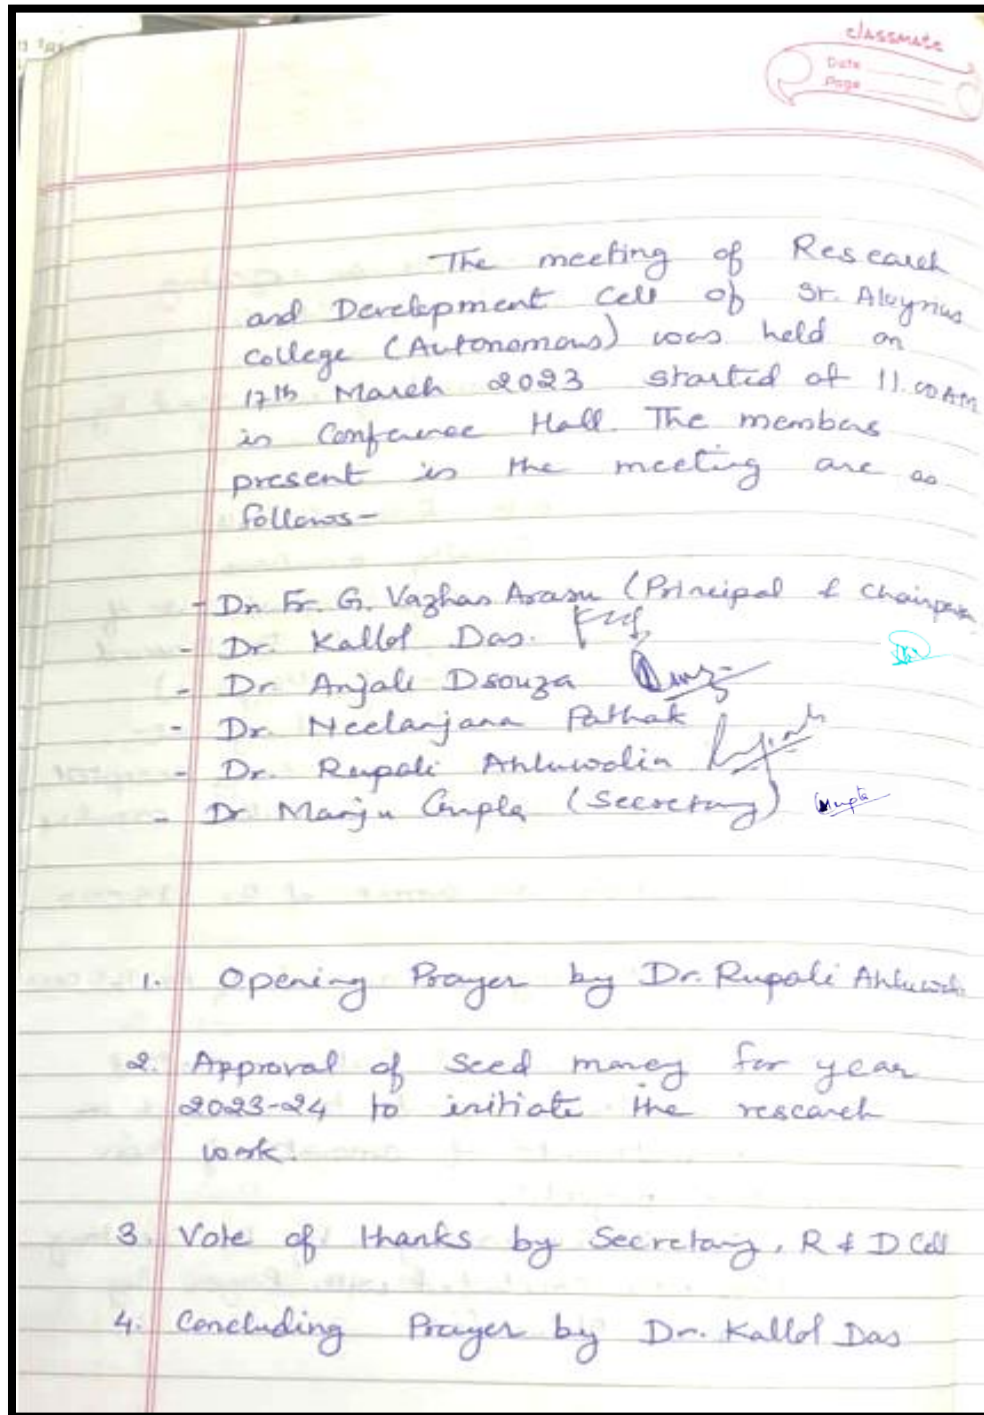 classmate
Date
Page
The meeting of Research
and Development Cell of St. Aloysius
College (Autonomous) was held on
17th March 2023 started at 11.00AM
in Conference Hall. The members
present in the meeting are as
follows-
- Dr. Fr. G. Vazhan Arasu (Principal & Chairperson
- Dr. Kallol Das.
- Dr. Anjali Dsouza
- Dr. Neelanjana Pathak
- Dr. Rupali Ahluwalia
- Dr Manju Gupta (Secretary) Gupta
1. Opening Prayer by Dr. Rupali Ahluwalia
2. Approval of seed money for year
2023-24 to initiate the research
work.
3. Vote of thanks by Secretary, R & D Cell
4. Concluding Prayer by Dr. Kallol Das